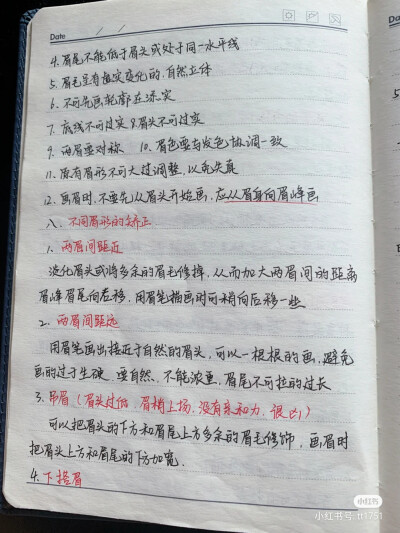 Date
4. 眉尾不能低于眉头或处于同一水平线
5. 眉毛呈有虚实变化的,自然立体
6. 不可先画轮廓在添实
7. 底线不可过实 8. 眉头不可过实
9. 两眉要对称 10. 眉色要与发色协调一致
11. 原有眉形不可大过调整,以免失真
12. 画眉时,不要先从眉头开始画,应从眉身向眉峰画
八、不同眉形的矫正
1. 两眉间距近
淡化眉头或将多余的眉毛修掉,从而加大两眉间的距离
眉峰眉尾向后移,用眉笔描画时可稍向后移一些
2. 两眉间距远
用眉笔画出接近于自然的眉头,可以一根根的画,避免
画的过于生硬,要自然,不能浓重,眉尾不可拉的过长
3. 吊眉(眉头过低,眉梢上扬,没有亲和力,很凶)
可以把眉头的下方和眉尾上方多余的眉毛修饰,画眉时
把眉头上方和眉尾的下方加宽.
4. 下搭眉
小红书
小红书号:
Da
5